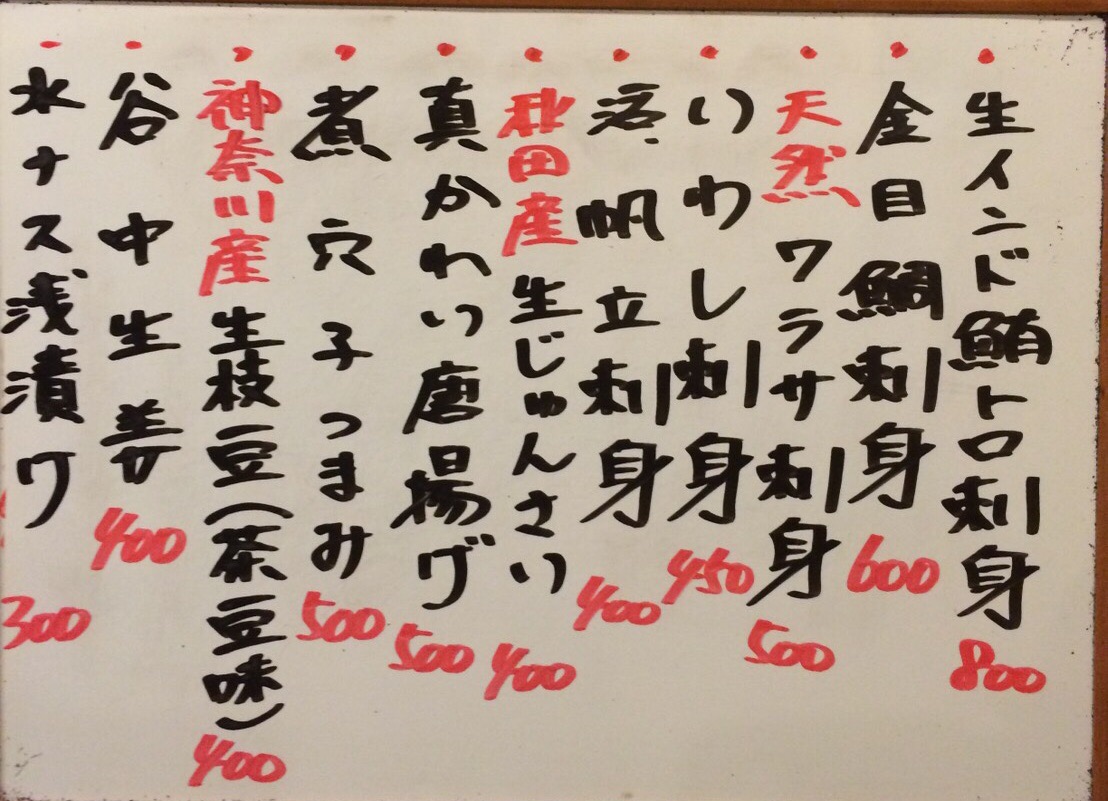 生インド鮪トロ刺身 800
金目鯛刺身 600
天然ワラサ刺身 500
いわし刺身 450
活帆立刺身 400
秋田産生じゅんさい 400
真かわいい唐揚げ 500
煮穴子つまみ 500
神奈川産生枝豆(茶豆味) 400
谷中生姜 400
水ナス浅漬ワ 300